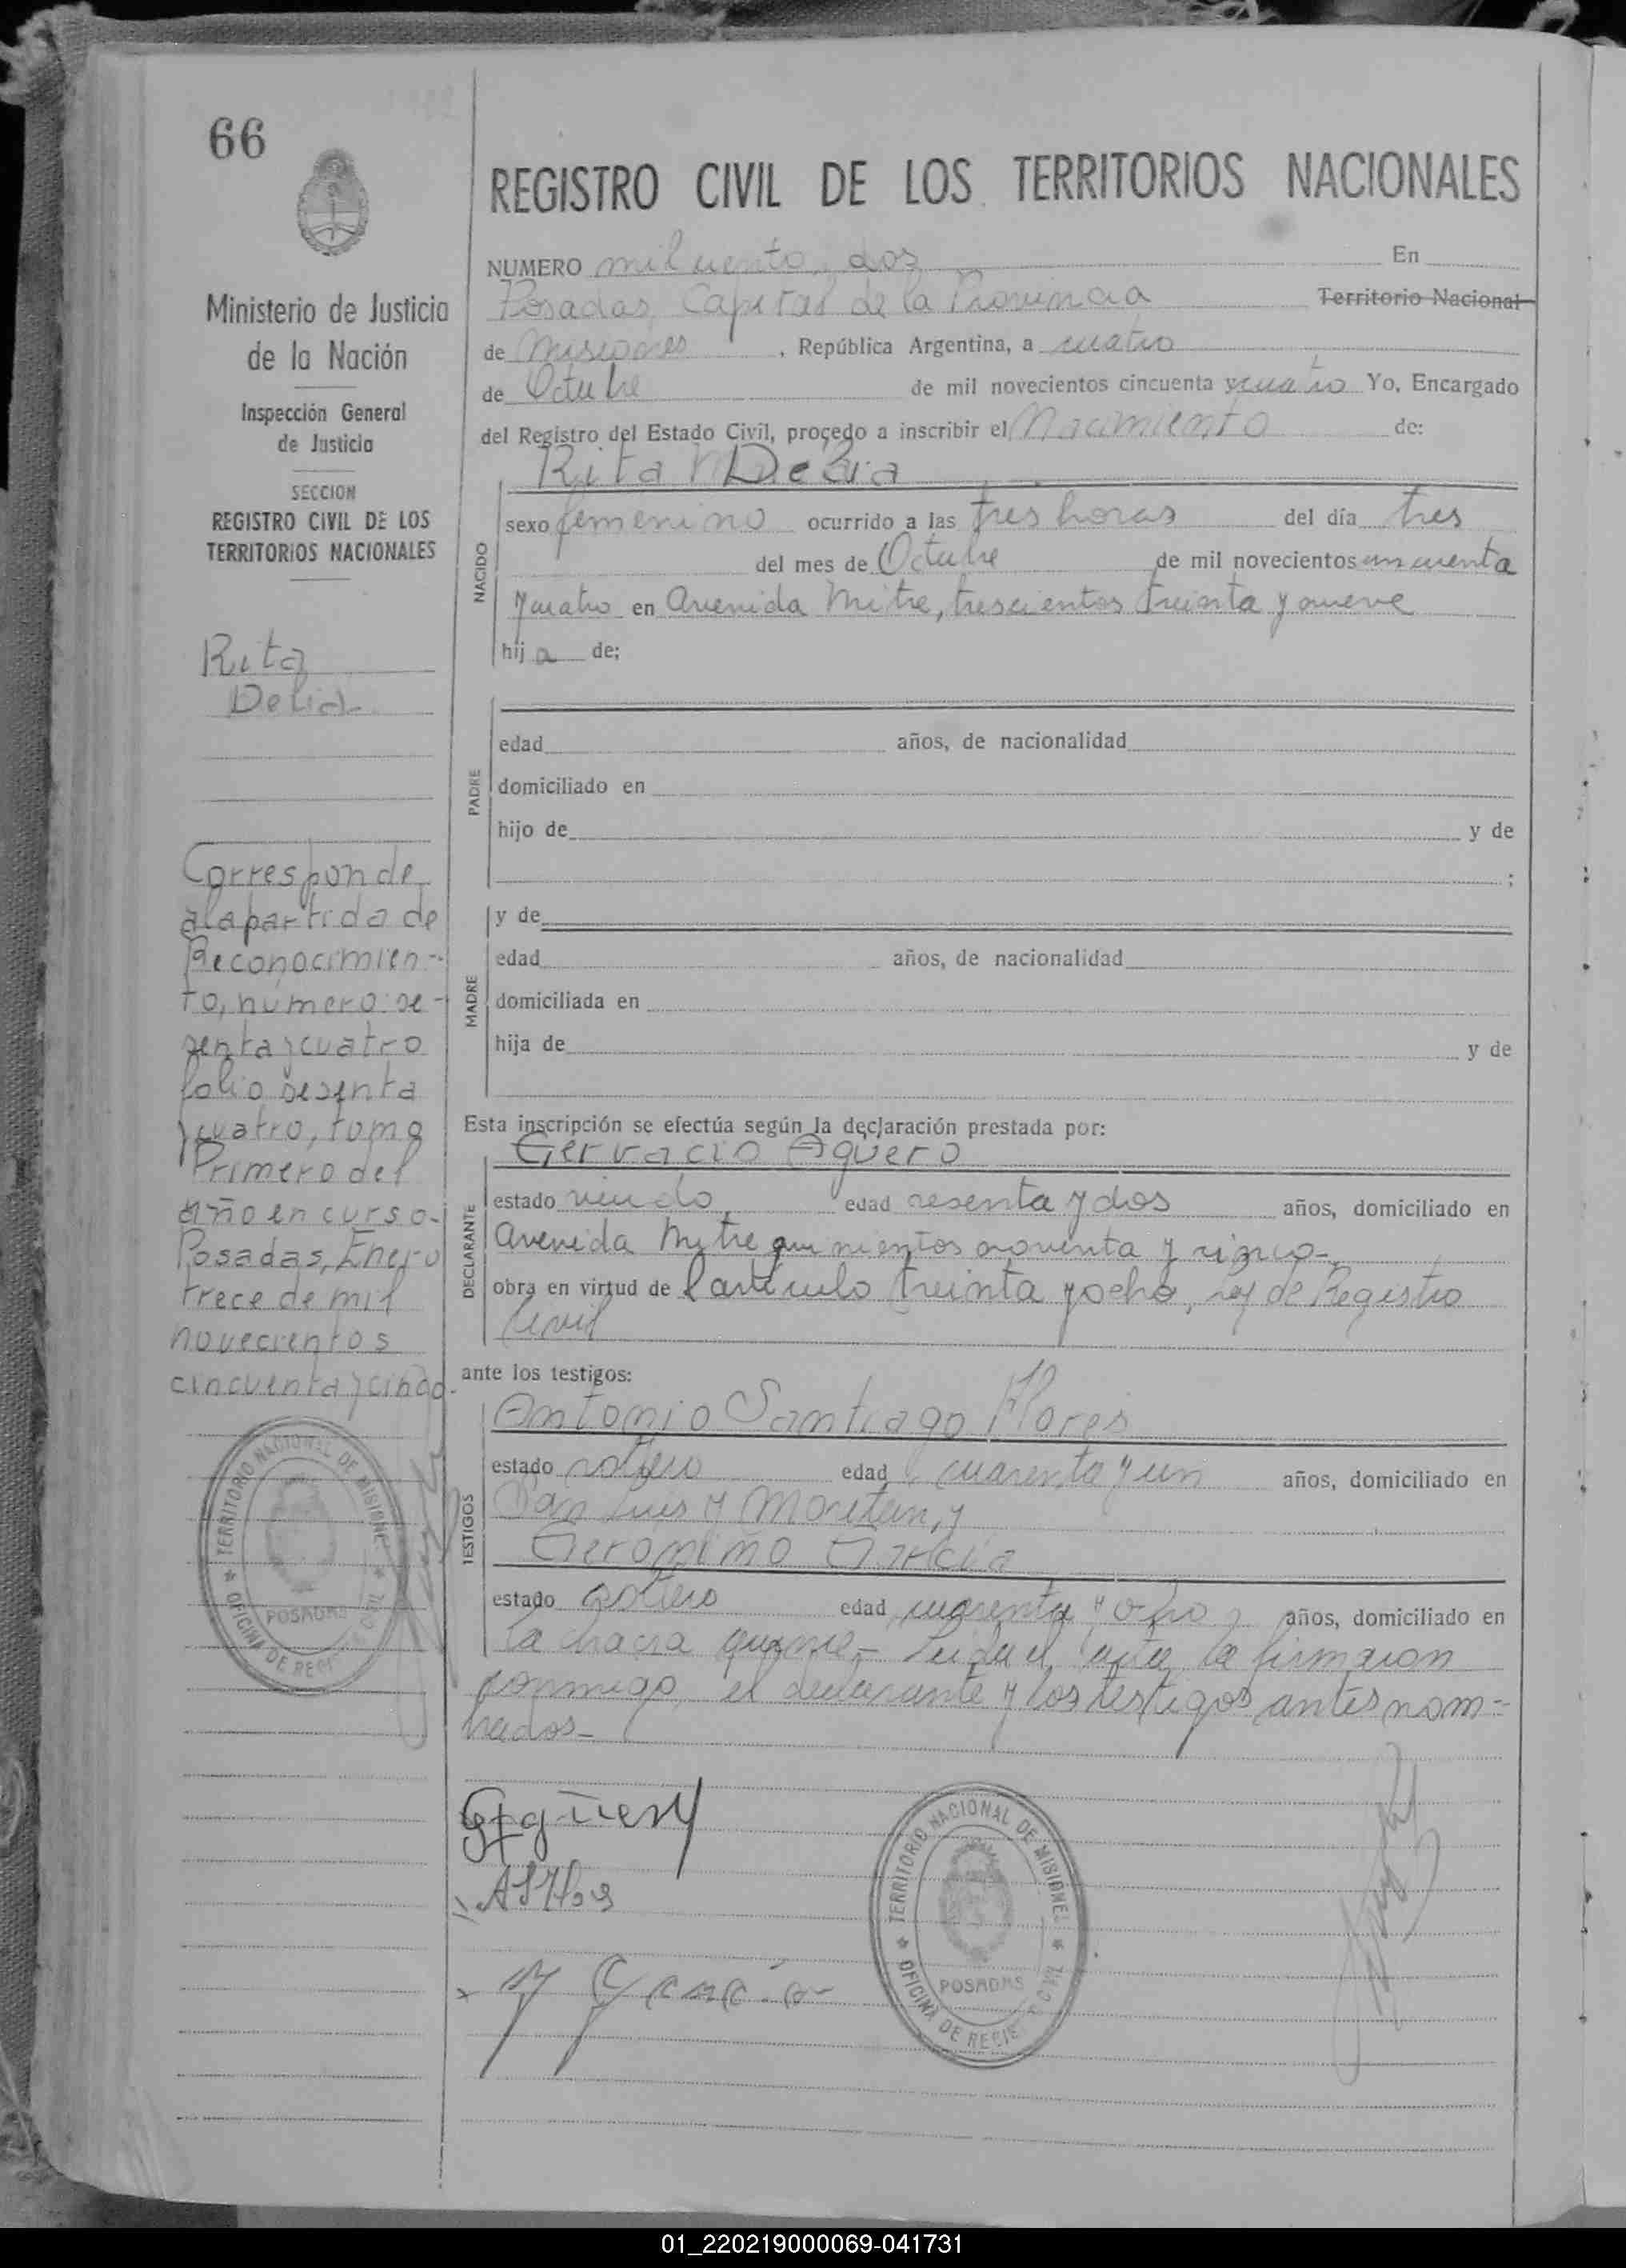 66
Ministerio de Justicia
de la Nación
Inspección General
de Justicia
SECCION
REGISTRO CIVIL DE LOS
TERRITORIOS NACIONALES
Rita
Delia
Corresponde
a la partida de
Reconocimien-
to, número: se-
senta y cuatro
folio sesenta
y cuatro, tomo
Primero del
año en curso.
Posadas, Enero
trece de mil
novecientos
cincuenta y cinco.
TERRITORIO NACIONAL DE MISIONES
POSADAS
OFICINA DE REGISTRO CIVIL
REGISTRO CIVIL DE LOS TERRITORIOS NACIONALES
NUMERO mil ciento dos En
Posadas, Capital de la Provincia Territorio Nacional
de Misiones, República Argentina, a cuatro
de Octubre de mil novecientos cincuenta y cuatro Yo, Encargado
del Registro del Estado Civil, procedo a inscribir el Nacimiento de:
Rita Delia
NACIDO
sexo femenino ocurrido a las tres horas del día tres
del mes de Octubre de mil novecientos cincuenta
y cuatro en Avenida Mitre, trescientos treinta y nueve
hija de;
PADRE
edad años, de nacionalidad
domiciliado en
hijo de y de
;
MADRE
y de
edad años, de nacionalidad
domiciliada en
hija de y de
Esta inscripción se efectúa según la declaración prestada por:
DECLARANTE
Gervacio Agüero
estado viudo edad sesenta y dos años, domiciliado en
Avenida Mitre quinientos noventa y cinco-
obra en virtud de l artículo treinta y ocho, Ley de Registro
Civil
ante los testigos:
TESTIGOS
Antonio Santiago Flores
estado soltero edad cuarenta y un años, domiciliado en
San Luis y y
Geronimo Garcia
estado soltero edad cuarenta y ocho años, domiciliado en
la chacra quince- Leida el acta la firmaron
conmigo, el declarante y los testigos antes nom=
brados-
GAgüero
ASFlores
García
TERRITORIO NACIONAL DE MISIONES
POSADAS
OFICINA DE REGISTRO CIVIL
01_220219000069-041731